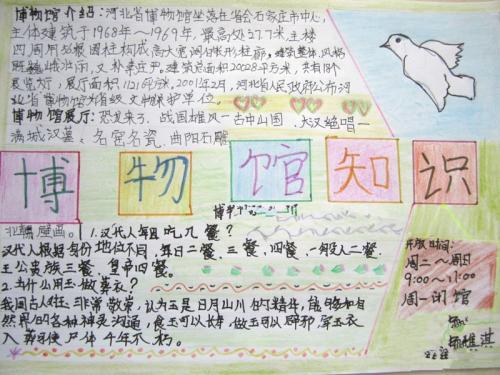 博物馆介绍：河北省博物馆坐落在省会石家庄市中心，
主体建筑于1968年～1969年，最高处27.7米，主楼
四周用圆柱构成高大宽阔柱廊，建筑整体风格
既雄壮，又朴素庄严。建筑总面积20028平方米，共有
展览厅，展厅面积1121平方米，2001年2月，河北省人民政府公布河
北省博物馆为省级文物保护单位。
博物馆展厅：恐龙来了、战国雄风—古中山国、大汉绝唱—
满城汉墓、名窑名瓷、曲阳石雕
博物馆知识
北朝壁画。
1.汉代人每日吃几餐？
汉代人根据身份地位不同，每日二餐、三餐、四餐，一般人二餐、
王公贵族三餐、皇帝四餐。
2.为什么用玉做葬衣？
我国古人对玉非常敬崇，认为玉是日月山川的精华，能够和自
然界的各种神灵沟通，食玉可以长寿，做玉可以辟邪，穿玉衣
入葬可使尸体千年不朽。
开放时间：
周二～周日
9:00～11:00
周一闭馆